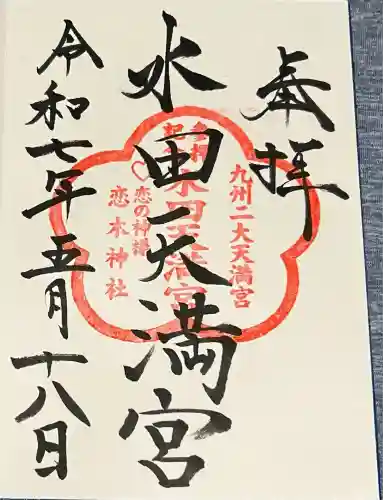 奉拝
水田天満宮
令和七年五月十八日
九州二大天満宮
参拝記念
水田天満宮
恋の神様
恋木神社